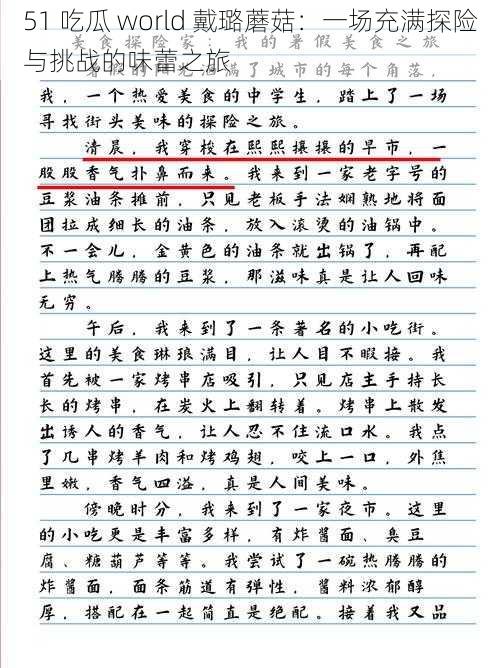 51 吃瓜 world 戴璐蘑菇：一场充满探险
与挑战的味蕾之旅
美食探险记：我的暑假美食之旅
暑假的阳光洒满了城市的每个角落，
我，一个热爱美食的中学生，踏上了一场
寻找街头美味的探险之旅。
清晨，我穿梭在熙熙攘攘的早市，一
股股香气扑鼻而来。我来到一家老字号的
豆浆油条摊前，只见老板手法娴熟地将面
团拉成细长的油条，放入滚烫的油锅中。
不一会儿，金黄色的油条就出锅了，再配
上热气腾腾的豆浆，那滋味真是让人回味
无穷。
午后，我来到了一条著名的小吃街。
这里的美食琳琅满目，让人目不暇接。我
首先被一家烤串店吸引，只见店主手持长
长的烤串，在炭火上翻转着。烤串上散发
出诱人的香气，让人忍不住流口水。我点
了几串烤羊肉和烤鸡翅，咬上一口，外焦
里嫩，香气四溢，真是人间美味。
傍晚时分，我来到了一家夜市。这里
的小吃更是丰富多样，有炸酱面、臭豆
腐、糖葫芦等等。我尝试了一碗热腾腾的
炸酱面，面条筋道有弹性，酱料浓郁醇
厚，搭配在一起简直是绝配。接着我又品